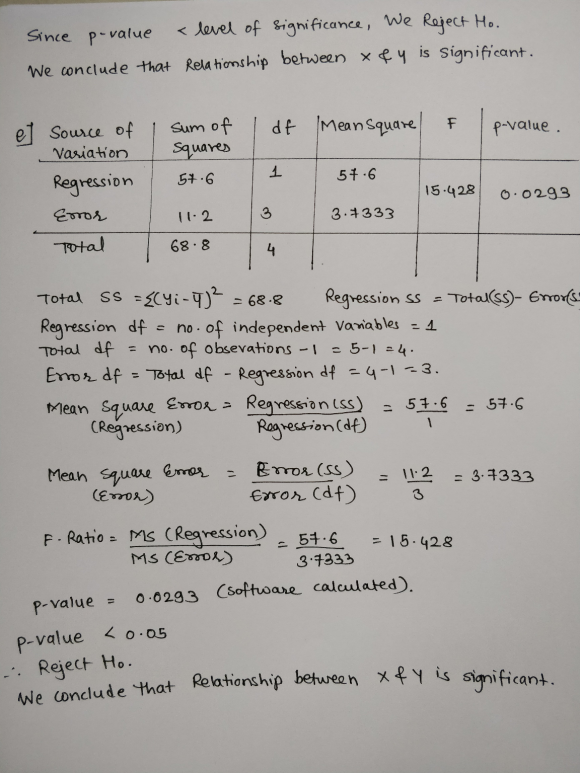 Since p-value < level of significance, We Reject Ho.
We conclude that Relationship between x & y is Significant.
e] Source of Variation | Sum of Squares | df | Mean Square | F | p-value.
Regression 57.6 1 57.6 15.428 0.0293
Error 11.2 3 3.7333
Total 68.8 4
Total SS = Σ(Yi-ȳ)² = 68.8 Regression SS = Total(SS)- Error(S
Regression df = no. of independent Variables = 1
Total df = no. of obsevations -1 = 5-1 = 4.
Error df = Total df - Regression df = 4-1 = 3.
Mean Square Error = Regression (SS) / Regression (df) = 57.6 / 1 = 57.6
(Regression)
Mean Square Error = Error (SS) / Error (df) = 11.2 / 3 = 3.7333
(Error)
F. Ratio = MS (Regression) / MS (Error) = 57.6 / 3.7333 = 15.428
p-value = 0.0293 (Software calculated).
p-value < 0.05
∴ Reject Ho.
We Conclude that Relationship between x & Y is significant.